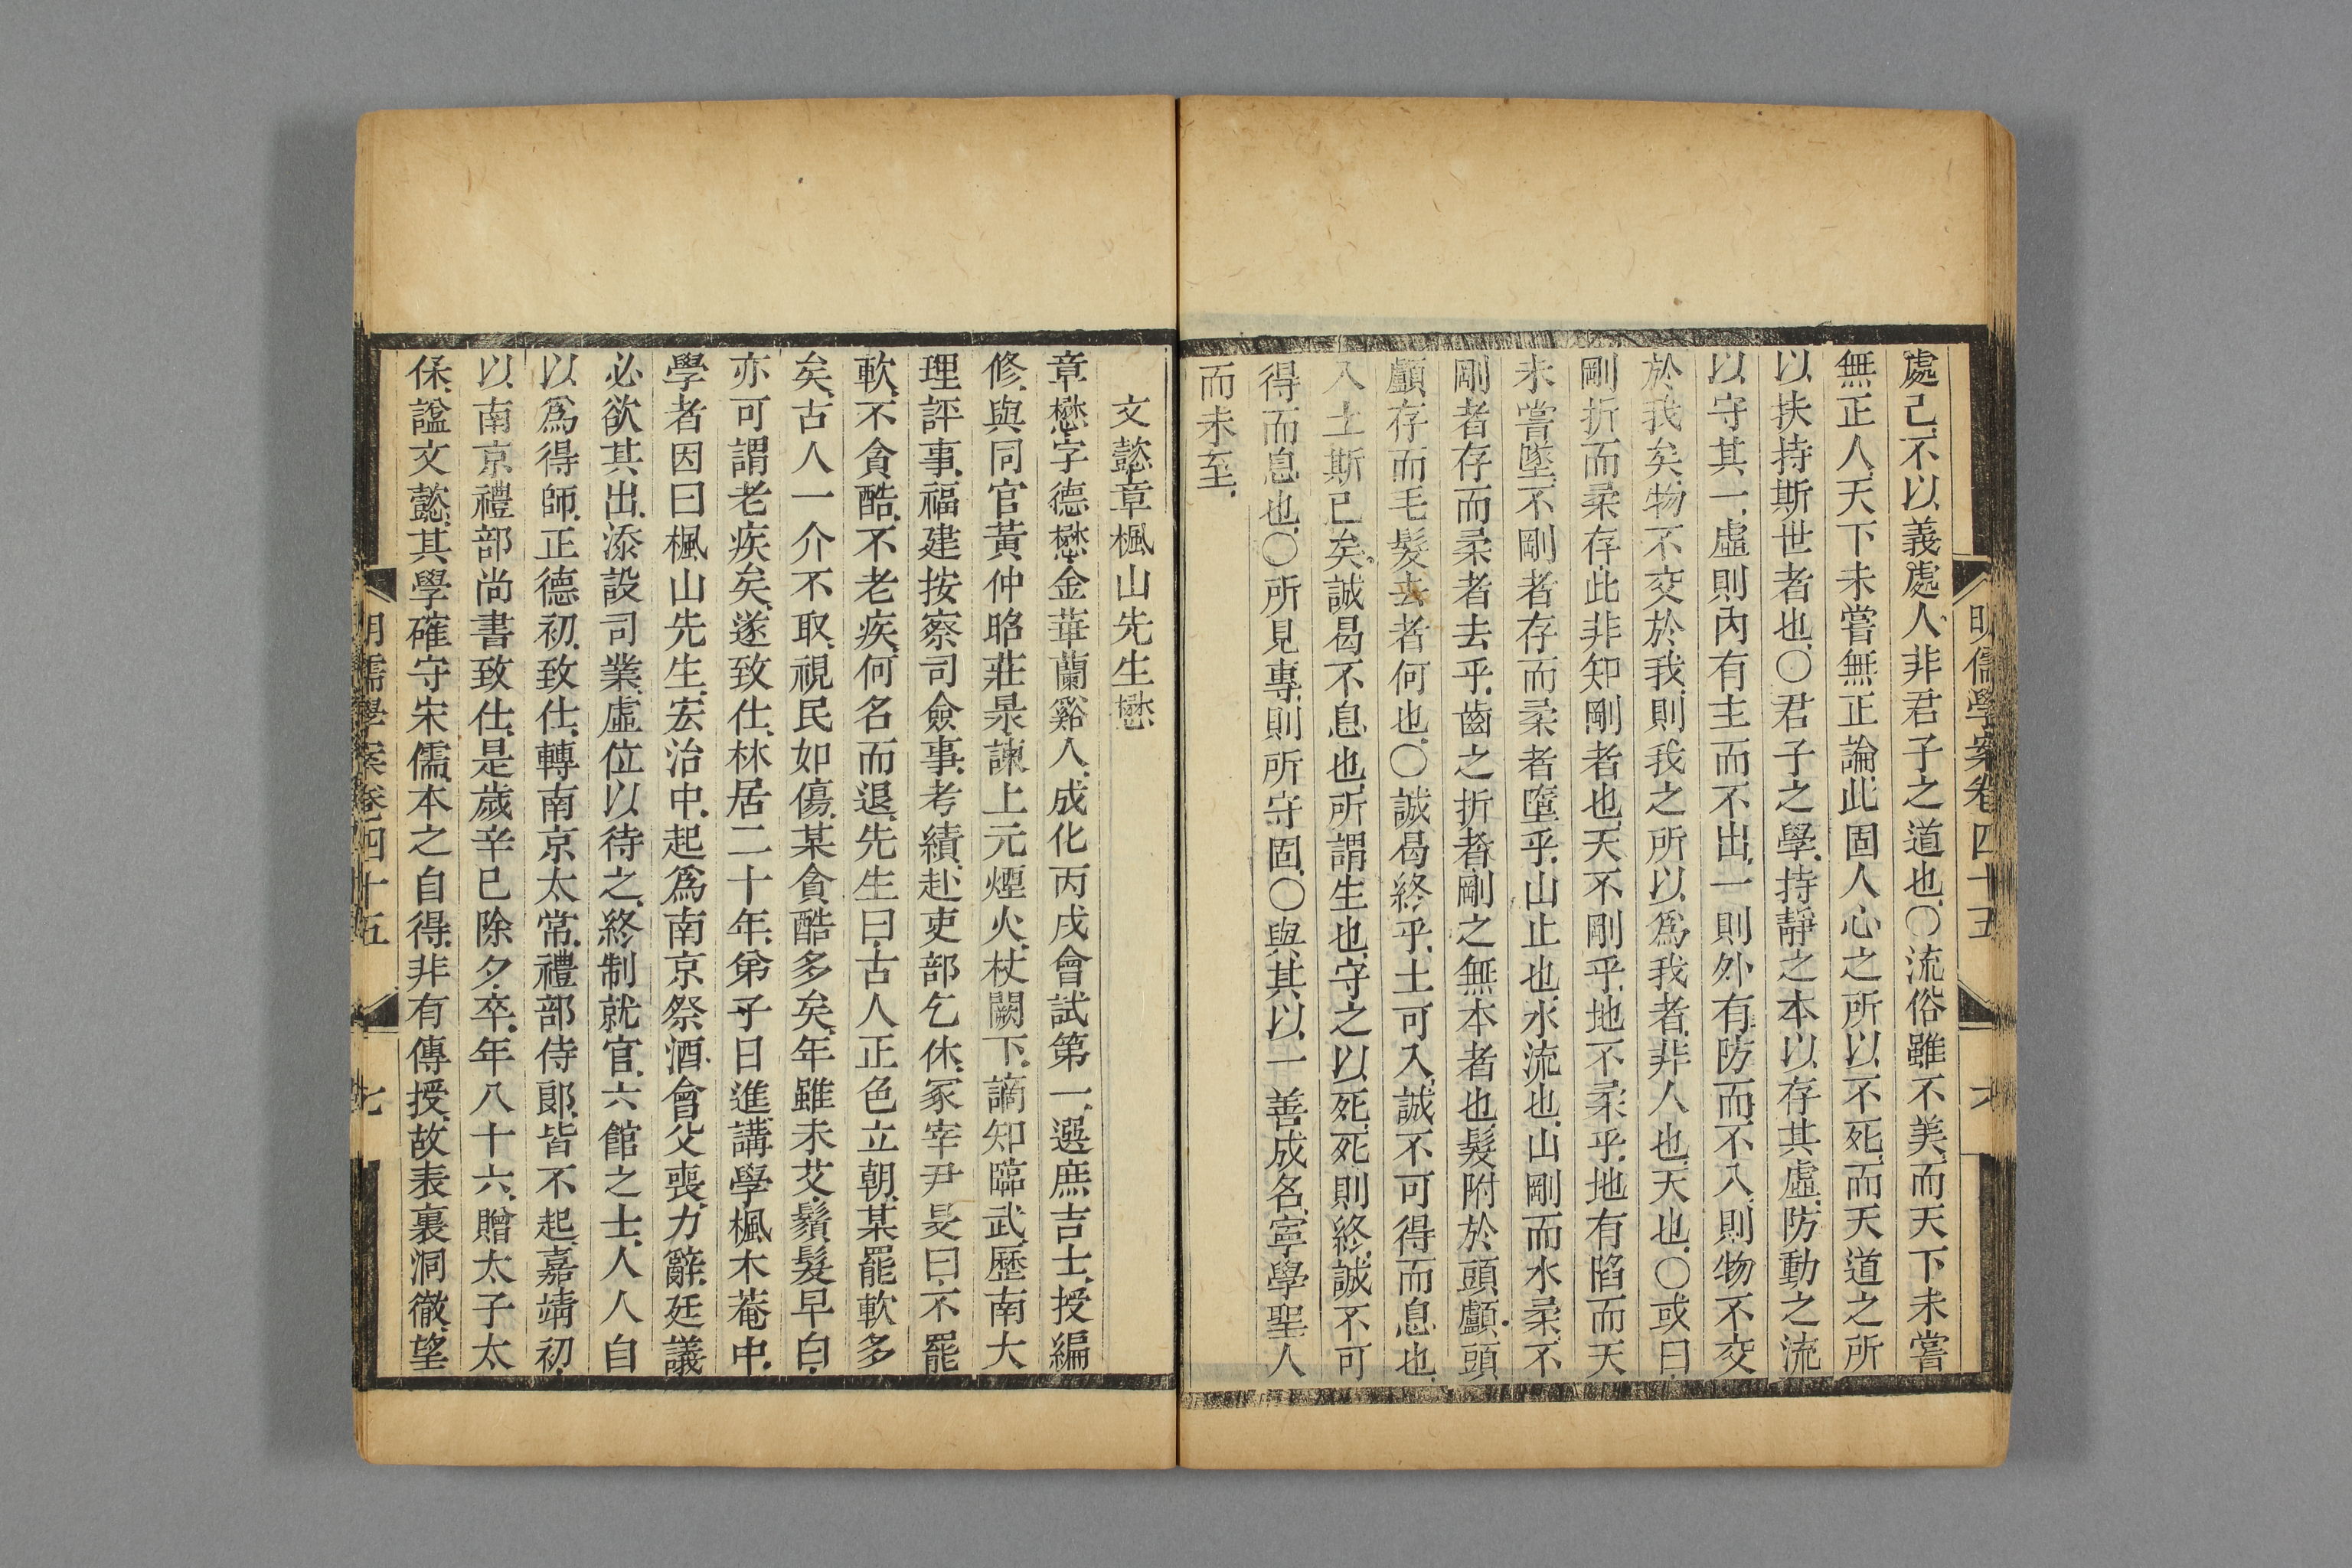 明儒學案卷四十五 六
處己、不以義處人、非君子之道也、〇流俗雖不美、而天下未嘗
無正人、天下未嘗無正論、此固人心之所以不死、而天道之所
以扶持斯世者也、〇君子之學、持靜之本、以存其虛、防動之流、
以守其一、虛則內有主而不出、一則外有防而不入、則物不交
於我矣、物不交於我、則我之所以爲我者、非人也、天也、〇或曰、
剛折而柔存、此非知剛者也、天不剛乎、地不柔乎、地有陷而天
未嘗墜、不剛者存而柔者墮乎、山止也、水流也、山剛而水柔、不
剛者存而柔者去乎、齒之折者、剛之無本者也、髮附於頭顱、頭
顱存而毛髮去者何也、〇誠曷終乎、土可入、誠不可得而息也、
入土斯已矣、誠曷不息也、所謂生也、守之以死、死則終、誠不可
得而息也、〇所見專、則所守固、〇與其以一善成名、寧學聖人
而未至、
文懿章楓山先生懋
章懋字德懋、金華蘭谿人、成化丙戌會試第一、選庶吉士、授編
修、與同官黃仲昭莊㫤諫上元煙火、杖闕下、謫知臨武、歷南大
理評事、福建按察司僉事、考績、赴吏部乞休、冢宰尹旻曰、不罷
軟、不貪酷、不老疾、何名而退、先生曰、古人正色立朝、某罷軟多
矣、古人一介不取、視民如傷、某貪酷多矣、年雖未艾、鬚髮早白、
亦可謂老疾矣、遂致仕、林居二十年、弟子日進、講學楓木菴中、
學者因曰楓山先生、宏治中、起爲南京祭酒、會父喪、力辭、廷議
必欲其出、添設司業、虛位以待之、終制就官、六館之士、人人自
以爲得師、正德初、致仕、轉南京太常、禮部侍郎、皆不起、嘉靖初、
以南京禮部尚書致仕、是歲辛巳除夕卒、年八十六、贈太子太
保、諡文懿、其學確守宋儒、本之自得、非有傳授、故表裏洞徹、望
明儒學案卷四十五 七